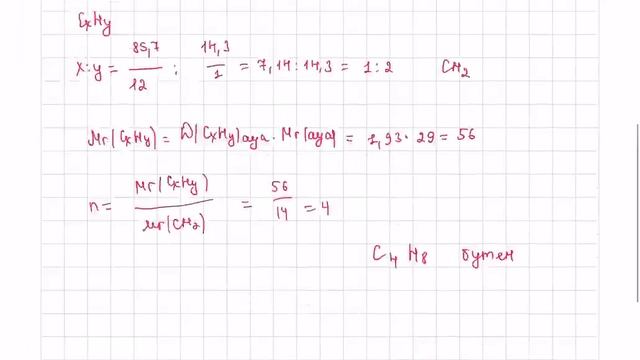 CxHy
x:y = 85,7/12 : 14,3/1 = 7,14:14,3 = 1:2 CH2
Mr(CxHy) = D(CxHy)ауа · Mr(ауа) = 1,93 · 29 = 56
n = Mr(CxHy)/Mr(CH2) = 56/14 = 4
C4H8 бутен